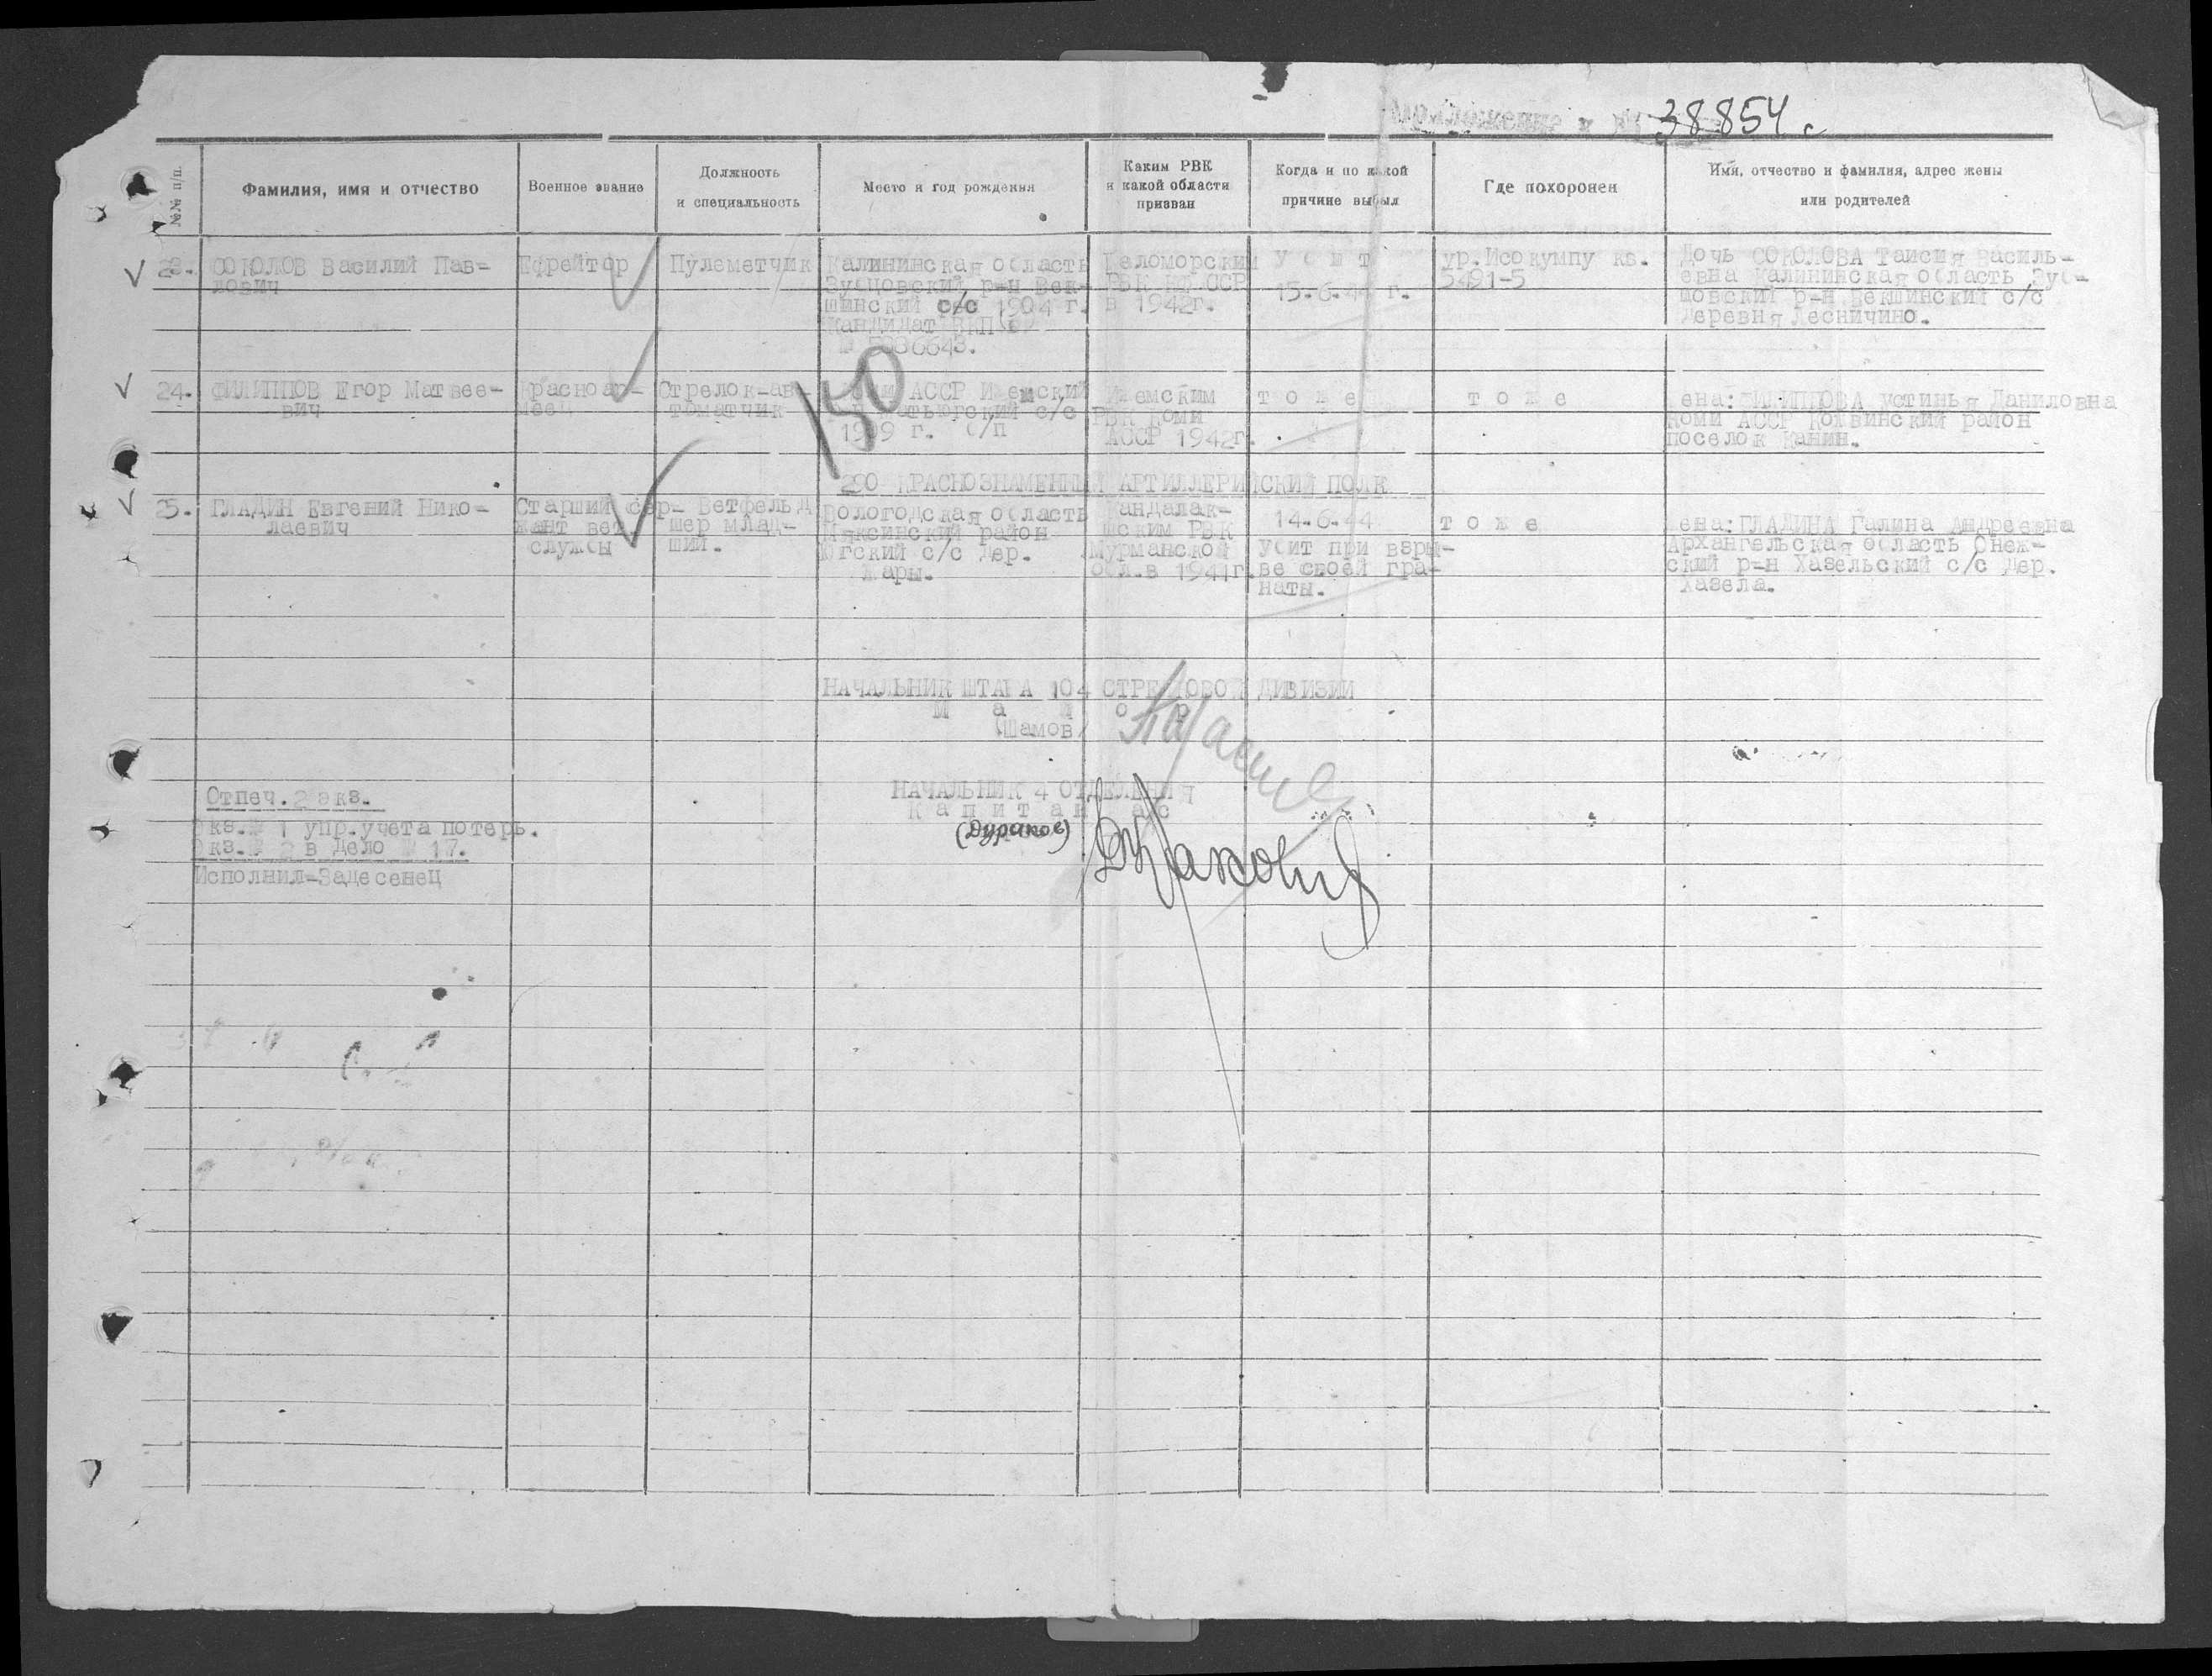 38854 с
№№ п/п.
Фамилия, имя и отчество
Военное звание
Должность
и специальность
Место и год рождения
Каким РВК
и какой области
призван
Когда и по какой
причине выбыл
Где похоронен
Имя, отчество и фамилия, адрес жены
или родителей
23.
СОКОЛОВ Василий Пав-
лович
Ефрейтор
Пулеметчик
Калининская область
Зубцовский р-н Век-
шинский с/с 1904 г.
Кандидат ВКП(б)
Беломорским
РВК КФССР
в 1942г.
Убит
15.6.44 г.
ур.Исокумпу кв.
5491-5
Дочь СОКОЛОВА Таисия Василь-
евна Калининская область Зуб-
цовский р-н Векшинский с/с
деревня Лесничино.
24.
ФИЛИППОВ Егор Матвее-
вич
Красноар-
меец
Стрелок-ав-
томатчик
150
Коми АССР Ижемский
с/с
1909 г. б/п
Ижемским
РВК Коми
АССР 1942г.
тоже
тоже
Жена: ФИЛИППОВА Устинья Даниловна
Коми АССР Кожвинский район
поселок Канин.
290 КРАСНОЗНАМЕННЫЙ АРТИЛЛЕРИЙСКИЙ ПОЛК
25.
ГЛАДИН Евгений Нико-
лаевич
Старший сер-
жант вет.
службы
Ветфельд
шер млад-
ший.
Вологодская область
Мяксинский район
Югский с/с дер.
Жары.
Кандалак-
шским РВК
Мурманской
обл.в 1941г.
14.6.44
Убит при взры-
ве своей гра-
наты.
тоже
Жена: ГЛАДИНА Галина Андреевна
Архангельская область Онеж-
ский р-н Хазельский с/с дер.
Хазела.
НАЧАЛЬНИК ШТАБА 104 СТРЕЛКОВОЙ ДИВИЗИИ
Майор
/Шамов/
НАЧАЛЬНИК 4 ОТДЕЛЕНИЯ
Капитан а/с
(Дураков)
Отпеч.2 экз.
Экз.№ 1 упр.учета потерь.
Экз.№ 2 в дело № 17.
Исполнил-Задесенец